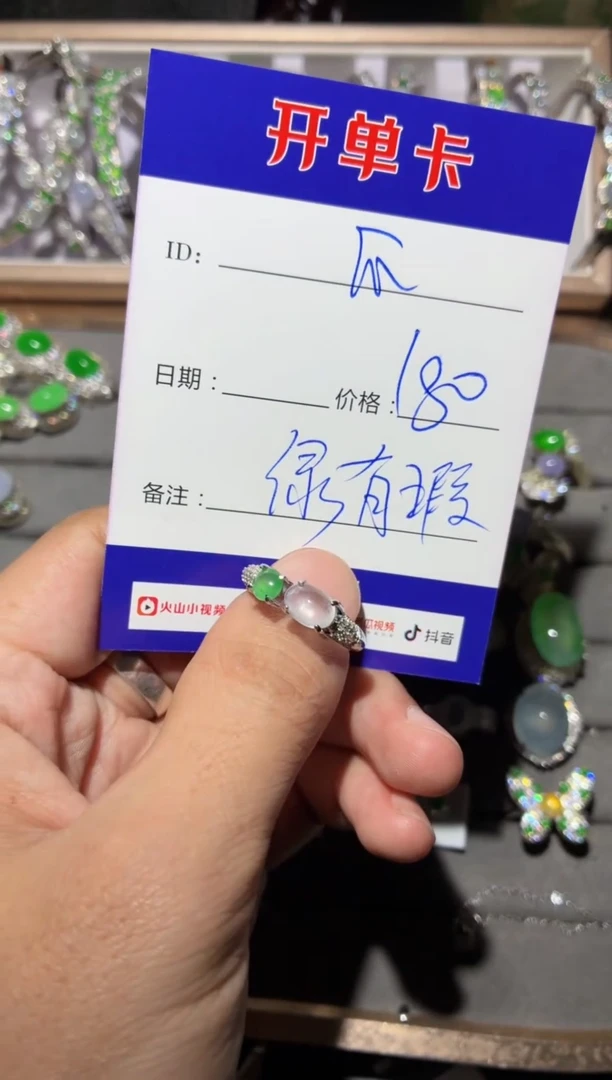 开单卡
ID：
日期： 价格：180
备注：绿有瑕
火山小视频 瓜视频 抖音